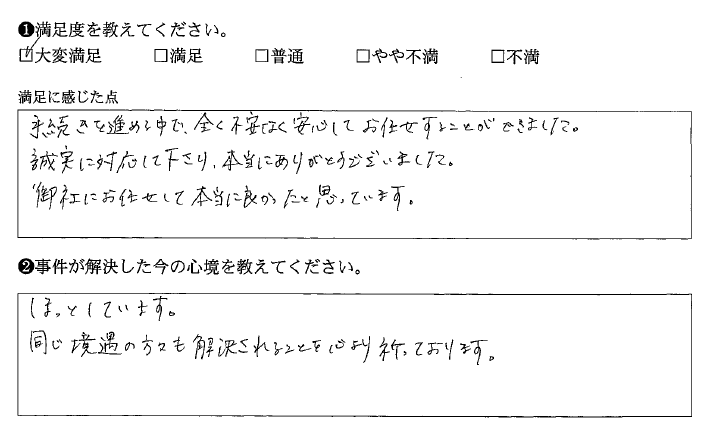 ❶満足度を教えてください。
☑大変満足 □満足 □普通 □やや不満 □不満
満足に感じた点
手続きを進める中で、全く不安なく安心してお任せすることができました。
誠実に対応して下さり、本当にありがとうございました。
御社にお任せして本当に良かったと思っています。
❷事件が解決した今の心境を教えてください。
ほっとしています。
同じ境遇の方々も解決されることを心より祈っております。